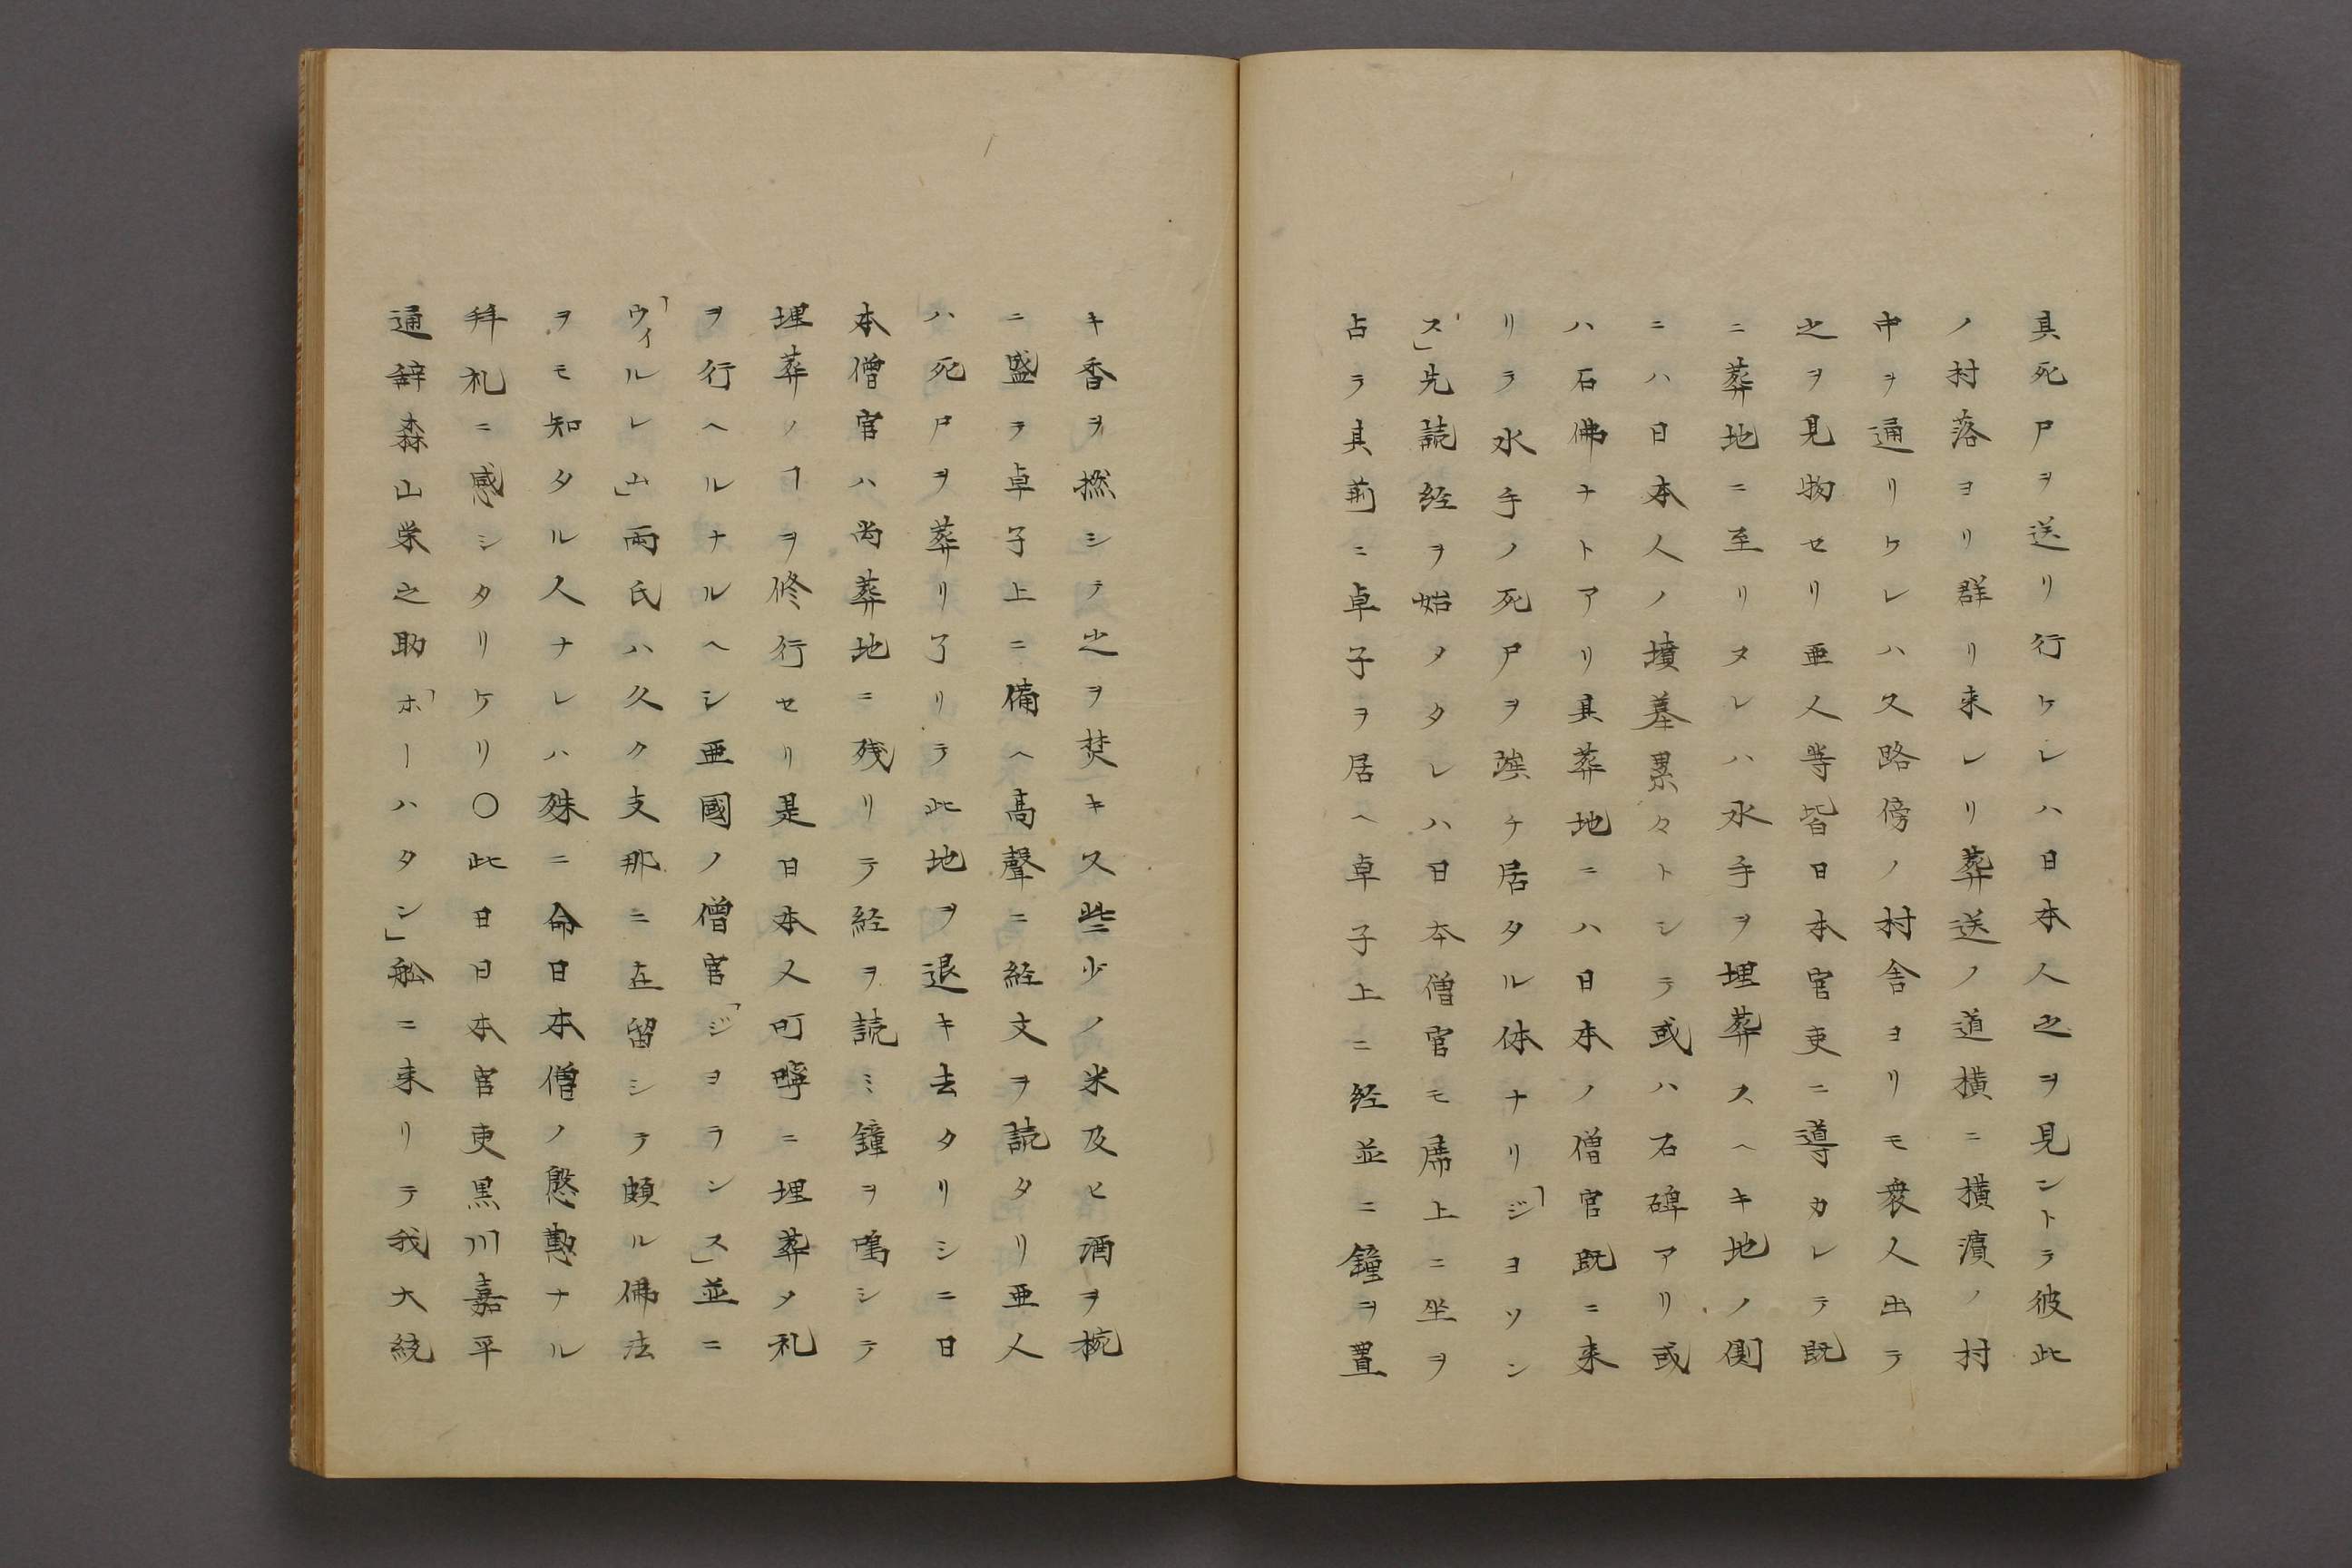 其死尸ヲ送リ行ケレハ日本人之ヲ見ントテ彼此
ノ村落ヨリ群リ来レリ葬送ノ道横ニ横濱ノ村
中ヲ通リケレハ又路傍ノ村舎ヨリモ衆人出テ
之ヲ見物セリ亜人等皆日本官吏ニ導カレテ既
ニ葬地ニ至リタレハ水手ヲ埋葬スヘキ地ノ側
ニハ日本人ノ墳墓累々トシテ或ハ石碑アリ或
ハ石佛ナトアリ其葬地ニハ日本ノ僧官既ニ来
リテ水手ノ死尸ヲ竢チ居タル体ナリ「ジヨソン
ス」先読経ヲ始メタレハ日本僧官モ席上ニ坐ヲ
占テ其前ニ卓子ヲ居ヘ卓子上ニ経並ニ鐘ヲ置
キ香ヲ撚シテ之ヲ焚キ又些少ノ米及ヒ酒ヲ椀
ニ盛テ卓子上ニ備ヘ高聲ニ経文ヲ読タリ亜人
ハ死尸ヲ葬リ了リテ此地ヲ退キ去タリシニ日
本僧官ハ尚葬地ニ残リテ経ヲ読ミ鐘ヲ鳴シテ
埋葬ノヿヲ修行セリ是日本人叮嚀ニ埋葬メ礼
ヲ行ヘルナルヘシ亜國ノ僧官「ジヨランス」並ニ
「ウィルレム」両氏ハ久ク支那ニ在留シテ頗ル佛法
ヲモ知タル人ナレハ殊ニ命日本僧ノ慇懃ナル
拜礼ニ感シタリケリ〇此日日本官吏黒川嘉平
通辞森山栄之助「ホーハタン」舩ニ来リテ我大統